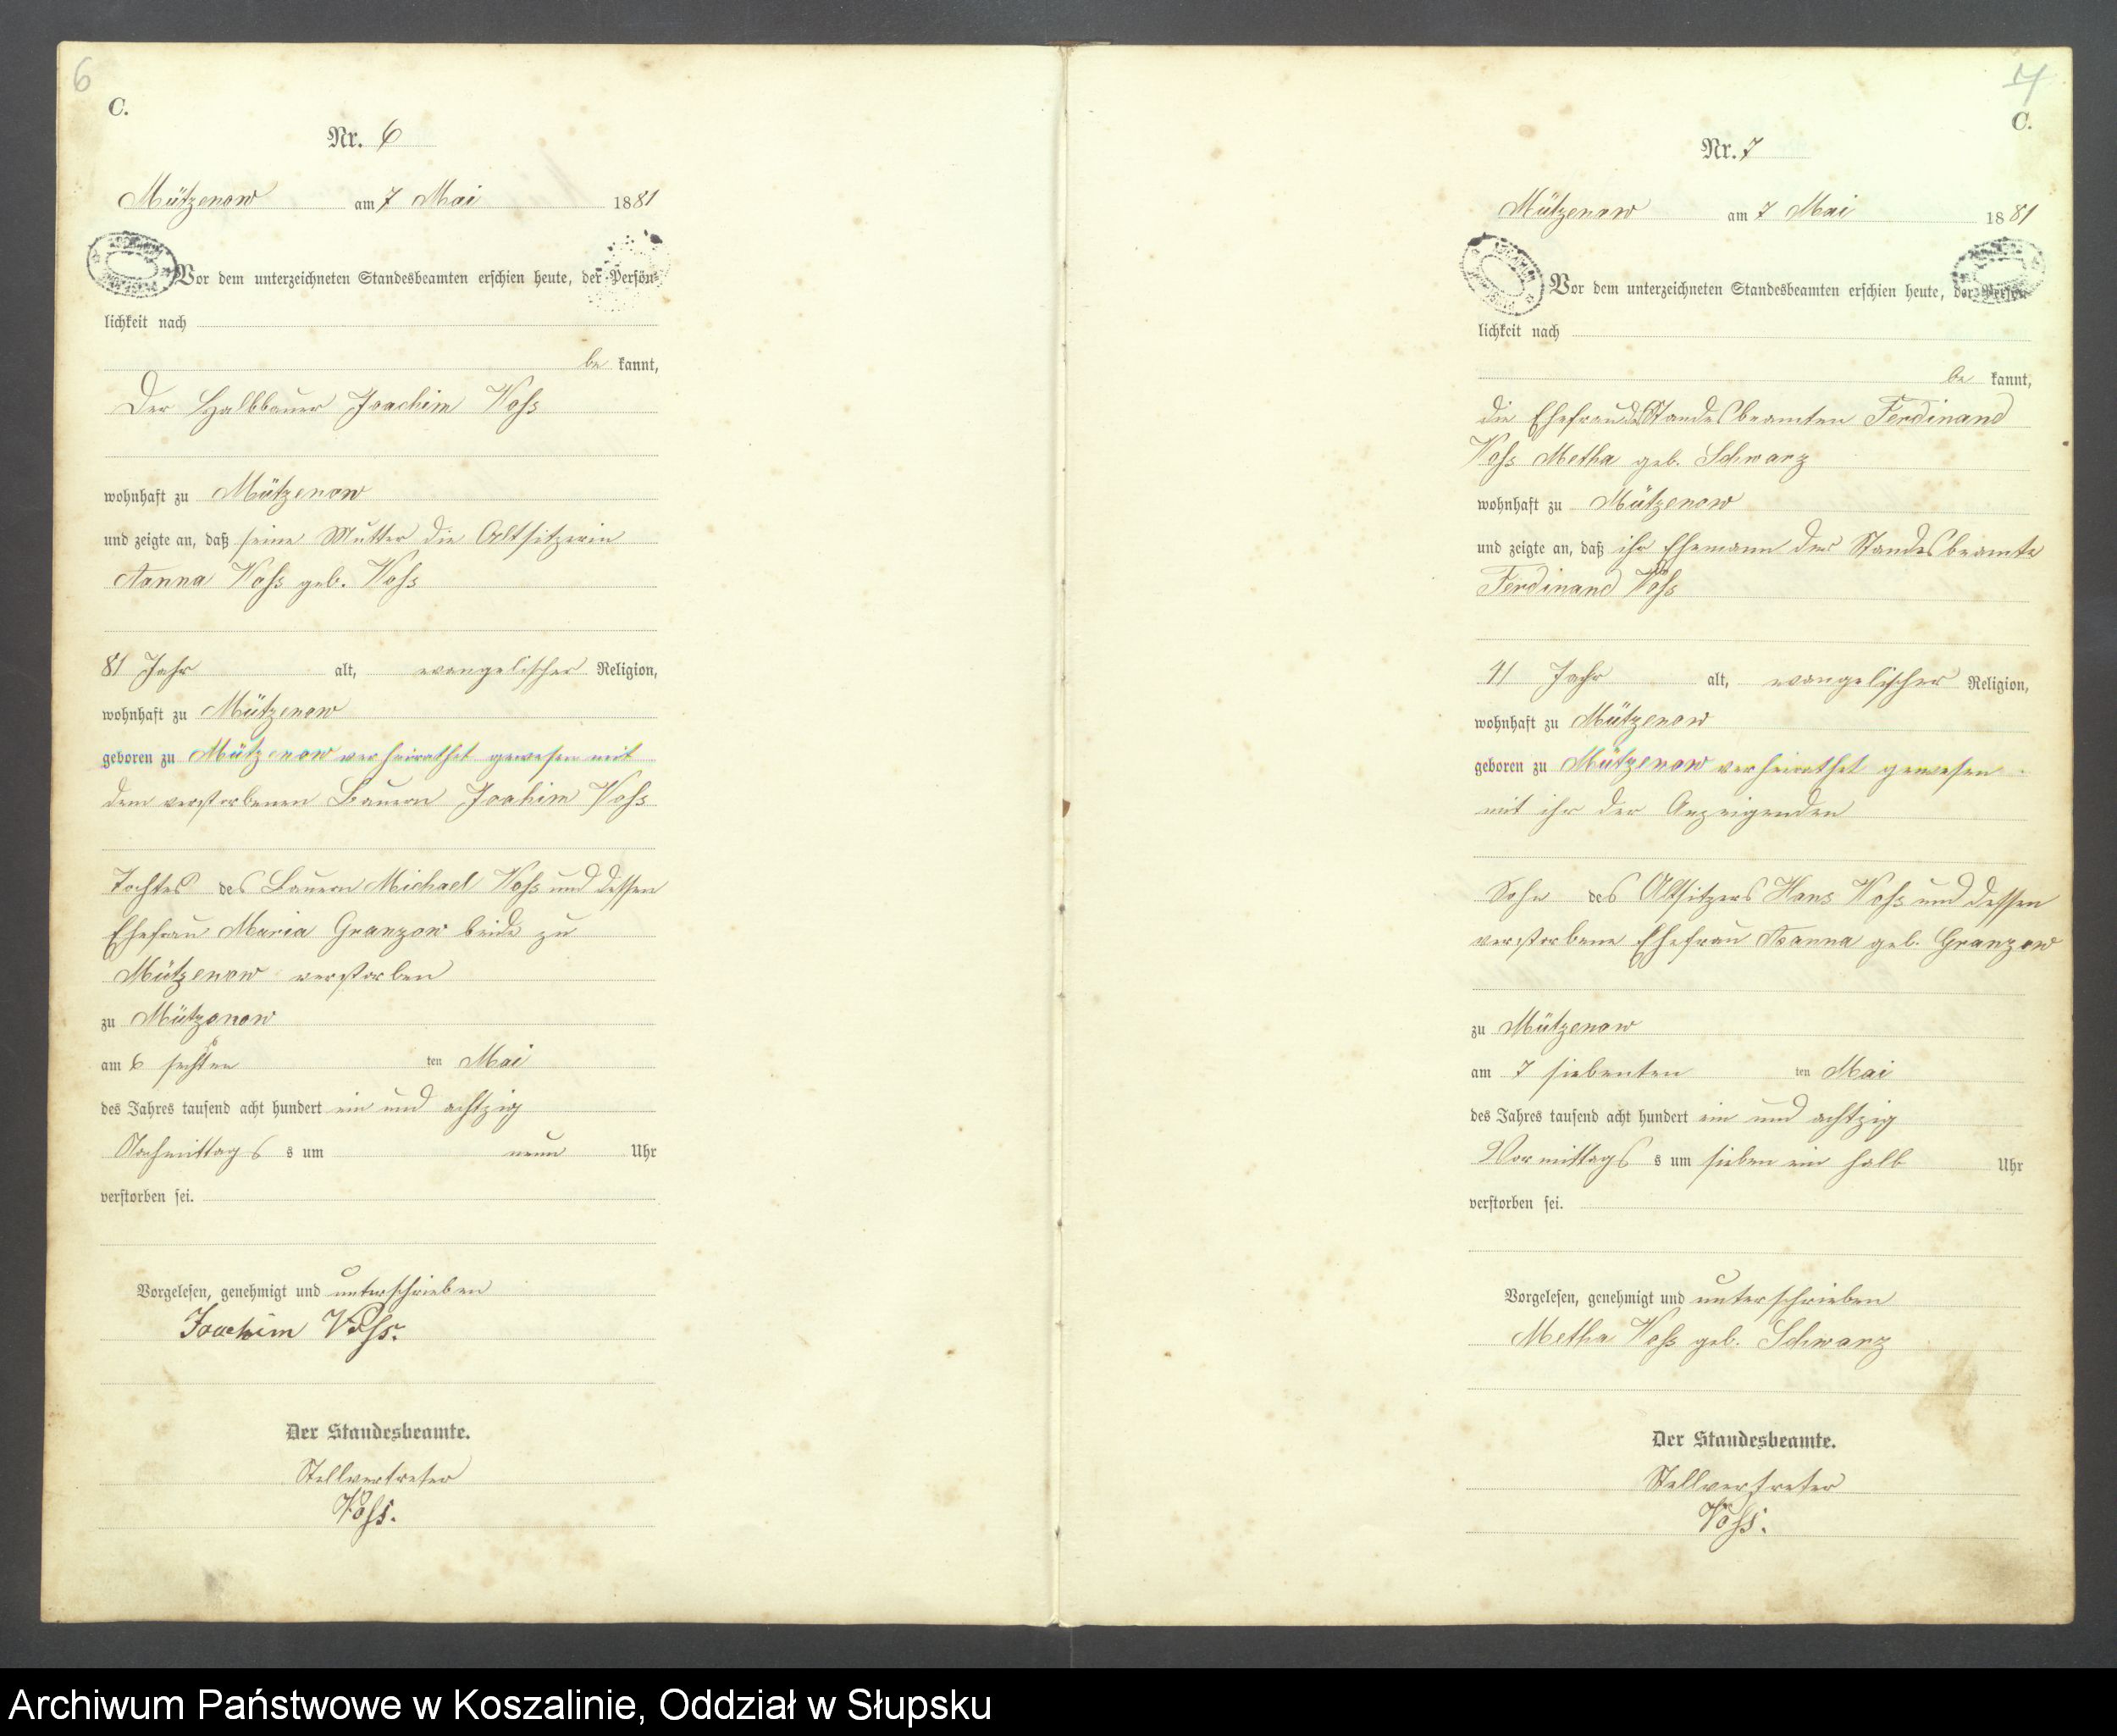 6
C.
Nr. 6
Mützenow am 7 Mai 1881
Vor dem unterzeichneten Standesbeamten erschien heute, der Persön-
lichkeit nach
be kannt,
Der Halbbauer Joachim Voss
wohnhaft zu Mützenow
und zeigte an, daß seine Mutter die Altsitzerin
Nanna Voss geb. Voss
81 Jahr alt, evangelischer Religion,
wohnhaft zu Mützenow
geboren zu Mützenow verheirathet gewesen mit
dem verstorbenen Bauern Joahim Voss
Tochter des Bauern Michael Voss und dessen
Ehefrau Maria Granzow beide zu
Mützenow verstorben
zu Mützenow
am 6 sechsten ten Mai
des Jahres tausend acht hundert ein und achtzig
Nachmittags s um neun Uhr
verstorben sei.
Vorgelesen, genehmigt und unterschrieben
Joachim Voss.
Der Standesbeamte.
Stellvertreter
Voss.
7
C.
Nr. 7
Mützenow am 7 Mai 1881
Vor dem unterzeichneten Standesbeamten erschien heute, der Persön-
lichkeit nach
be kannt,
die Ehefrau des Standesbeamten Ferdinand
Voss Metha geb. Schwarz
wohnhaft zu Mützenow
und zeigte an, daß ihr Ehemann der Standesbeamte
Ferdinand Voss
41 Jahr alt, evangelischer Religion,
wohnhaft zu Mützenow
geboren zu Mützenow verheirathet gewesen
mit ihr der Anzeigenden
Sohn des Altsitzers Hans Voss und dessen
verstorbene Ehefrau Nanna geb. Granzow
zu Mützenow
am 7 siebenten ten Mai
des Jahres tausend acht hundert ein und achtzig
Vormittags s um sieben ein halb Uhr
verstorben sei.
Vorgelesen, genehmigt und unterschrieben
Metha Voss geb. Schwarz
Der Standesbeamte.
Stellvertreter
Voss.
Archiwum Państwowe w Koszalinie, Oddział w Słupsku